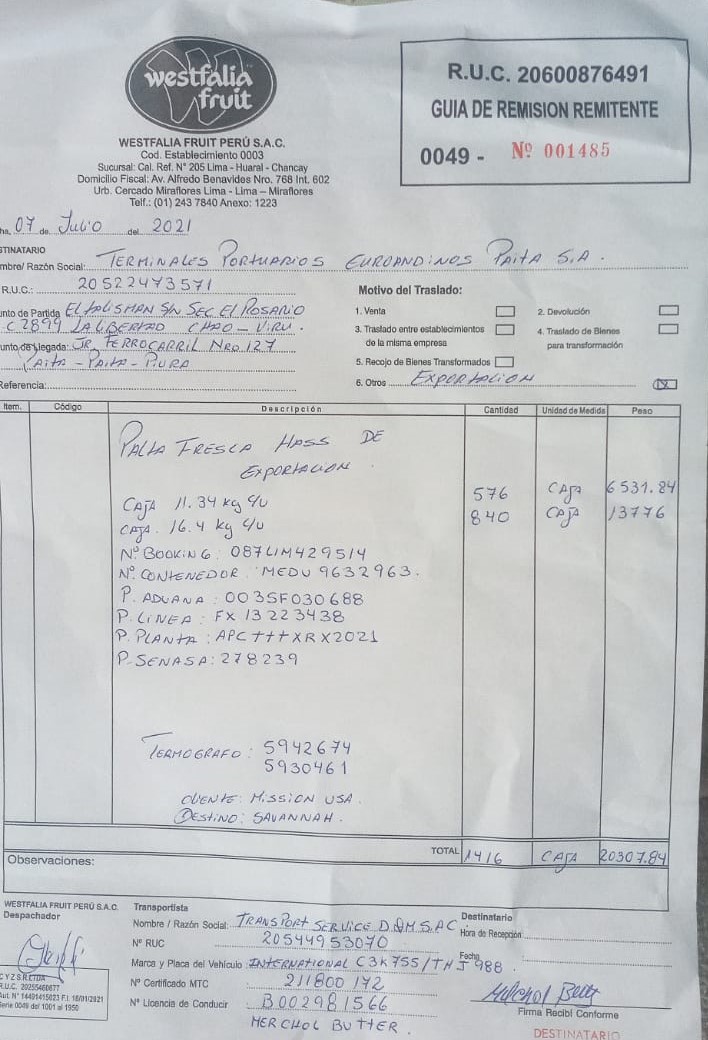 westfalia
fruit
WESTFALIA FRUIT PERÚ S.A.C.
Cod. Establecimiento 0003
Sucursal: Cal. Ref. N° 205 Lima - Huaral - Chancay
Domicilio Fiscal: Av. Alfredo Benavides Nro. 768 Int. 602
Urb. Cercado Miraflores Lima - Lima – Miraflores
Telf.: (01) 243 7840 Anexo: 1223
R.U.C. 20600876491
GUIA DE REMISION REMITENTE
0049 - Nº 001485
07 de Julio del 2021
STINATARIO
mbre/ Razón Social: TERMINALES PORTUARIOS EUROANDINOS PAITA S.A.
R.U.C.: 20522473571
Motivo del Traslado:
unto de Partida EL TALISMAN S/N SEC EL ROSARIO
C2899 LA LIBERTAD CHAO - VIRU.
unto de Llegada: JR. FERROCARRIL NRO 127
PAITA - PAITA - PIURA
Referencia:
1. Venta
2. Devolución
3. Traslado entre establecimientos
de la misma empresa
4. Traslado de Bienes
para transformación
5. Recojo de Bienes Transformados
6. Otros EXPORTACION X
Item. Código Descripción Cantidad Unidad de Medida Peso
PALTA FRESCA HASS DE
EXPORTACION.
CAJA 11.34 kg c/u 576 CAJA 6531.84
CAJA. 16.4 kg c/u 840 CAJA 13776
Nº BOOKING: 087LIM429514
Nº. CONTENEDOR: MEDU 9632963.
P. ADUANA: 0035F030688
P. LINEA: FX 13223438
P. PLANTA: APC+++XRX2021
P. SENASA: 278239
TERMOGRAFO: 5942674
5930461
CLIENTE: MISSION USA.
DESTINO: SAVANNAH.
TOTAL 1416 CAJA 20307.84
Observaciones:
WESTFALIA FRUIT PERÚ S.A.C.
Despachador
Transportista
Nombre / Razón Social: TRANSPORT SERVICE D&M S.A.C
Nº RUC 20544953070
Marca y Placa del Vehículo INTERNATIONAL C3K755/THJ988.
Nº Certificado MTC 211800172
Nº Licencia de Conducir B002981566
MERCHOL BUTTER.
Destinatario
Hora de Recepción
Fecha
Firma Recibí Conforme
DESTINATARIO
R.U.C. 20255460677
Serie 0049 del 1001 al 1950